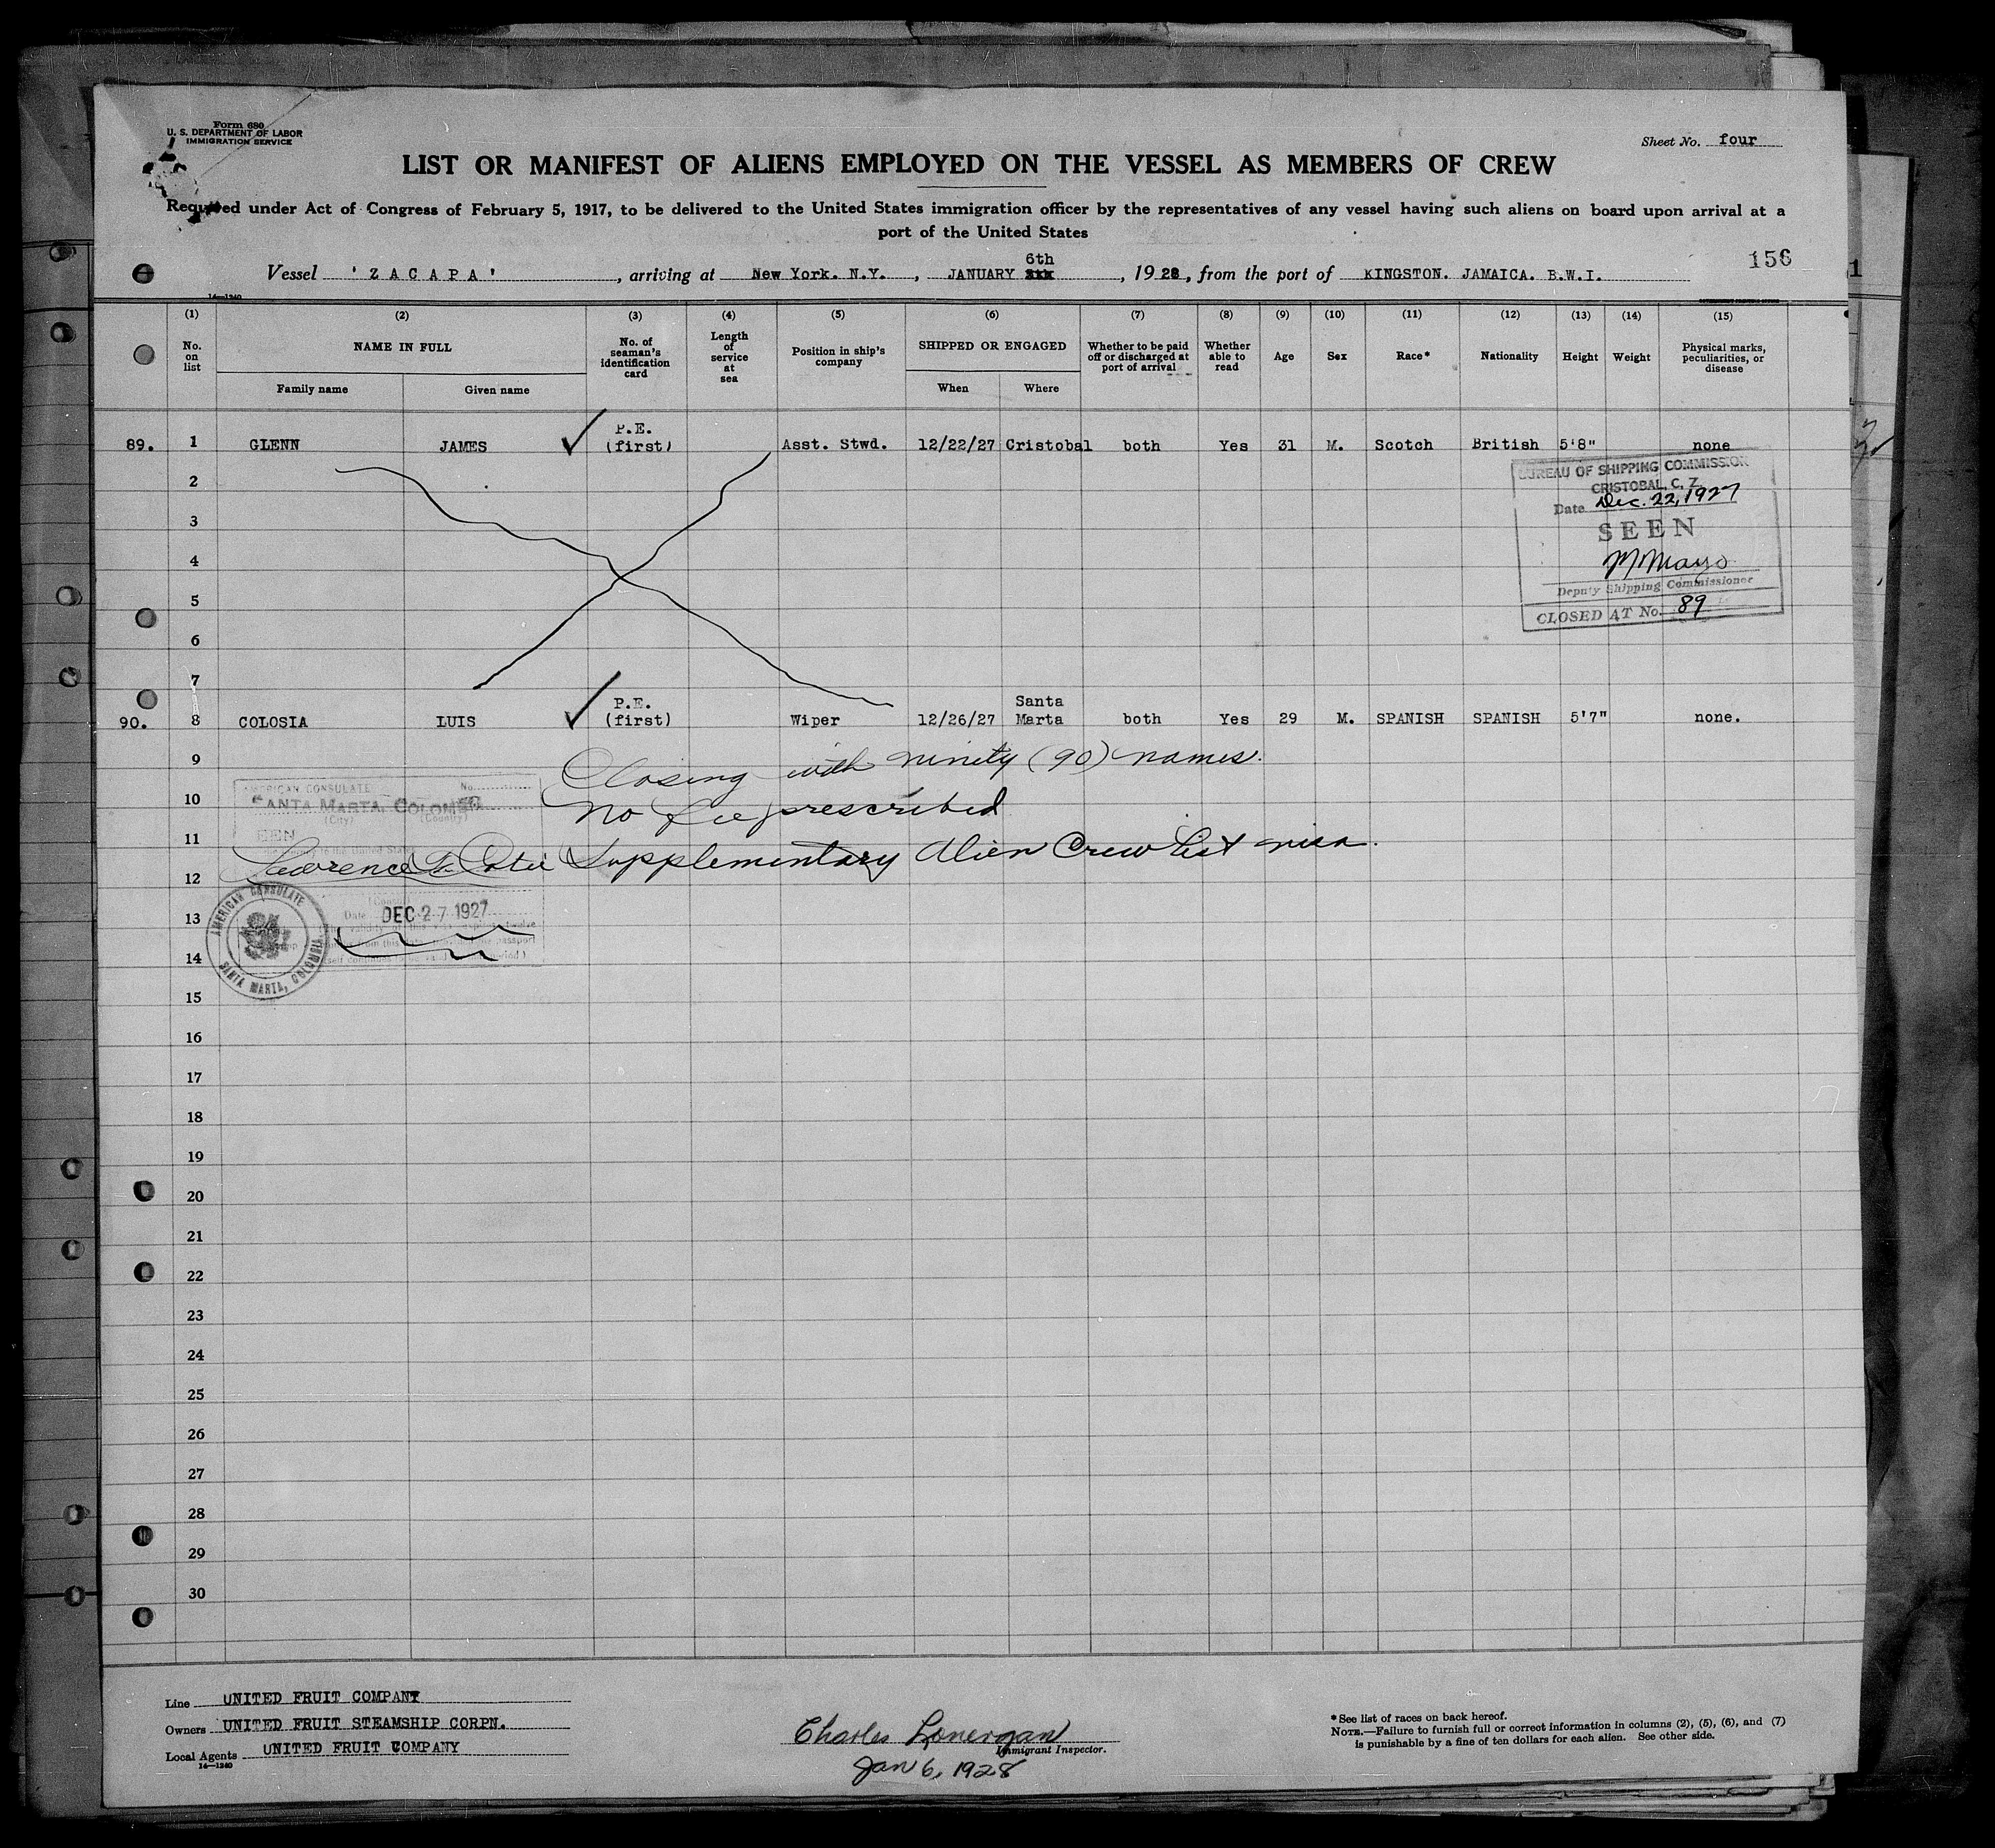 Form 680
U. S. DEPARTMENT OF LABOR
IMMIGRATION SERVICE
Sheet No. four
LIST OR MANIFEST OF ALIENS EMPLOYED ON THE VESSEL AS MEMBERS OF CREW
Required under Act of Congress of February 5, 1917, to be delivered to the United States immigration officer by the representatives of any vessel having such aliens on board upon arrival at a
port of the United States
156
6th
Vessel 'ZACAPA', arriving at New York. N.Y., JANUARY, 1928, from the port of KINGSTON. JAMAICA. B.W.I.
14—1240
(1) (2) (3) (4) (5) (6) (7) (8) (9) (10) (11) (12) (13) (14) (15)
No. on list NAME IN FULL No. of seaman's identification card Length of service at sea Position in ship's company SHIPPED OR ENGAGED Whether to be paid off or discharged at port of arrival Whether able to read Age Sex Race* Nationality Height Weight Physical marks, peculiarities, or disease
Family name Given name When Where
89. 1 GLENN JAMES P.E. (first) Asst. Stwd. 12/22/27 Cristobal both Yes 31 M. Scotch British 5'8" none
BUREAU OF SHIPPING COMMISSION
CRISTOBAL, C. Z.
2
Date Dec. 22, 1927
3
SEEN
4
M Mayo
5
Deputy Shipping Commissioner
CLOSED AT No. 89
6
7
90. 8 COLOSIA LUIS P.E. (first) Wiper 12/26/27 Santa Marta both Yes 29 M. SPANISH SPANISH 5'7" none.
9
Closing with ninety (90) names.
AMERICAN CONSULATE No.
10
SANTA MARTA, COLOMBIA
(City) (Country)
No fee prescribed
11
SEEN
Supplementary Alien Crew List visa.
12
AMERICAN CONSULATE
SANTA MARTA, COLOMBIA
13
Date DEC 27 1927
14
15
16
17
18
19
20
21
22
23
24
25
26
27
28
29
30
Line UNITED FRUIT COMPANY
Owners UNITED FRUIT STEAMSHIP CORPN.
Local Agents UNITED FRUIT COMPANY
14—1240
Charles Lonergan
Immigrant Inspector.
Jan 6, 1928
*See list of races on back hereof.
NOTE.—Failure to furnish full or correct information in columns (2), (5), (6), and (7)
is punishable by a fine of ten dollars for each alien. See other side.